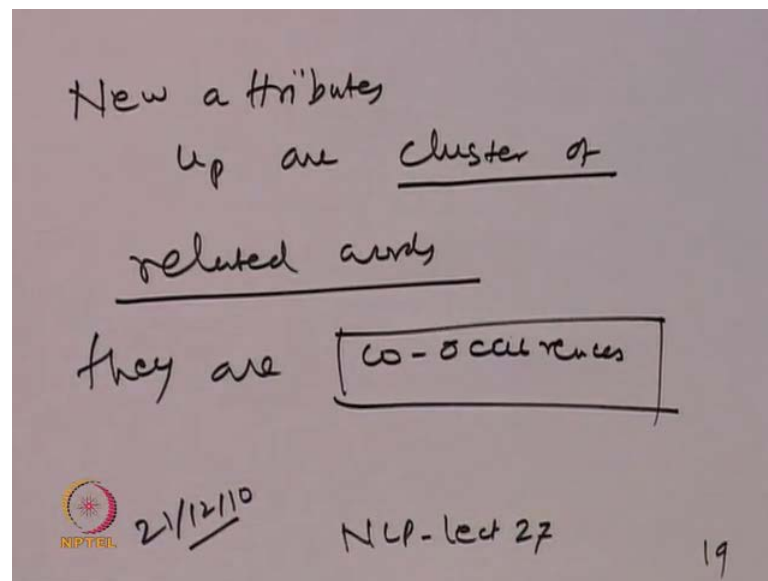 New attributes
up are cluster of
related words
they are co-occurrences
NPTEL 21/12/10 NLP-lect 27 19